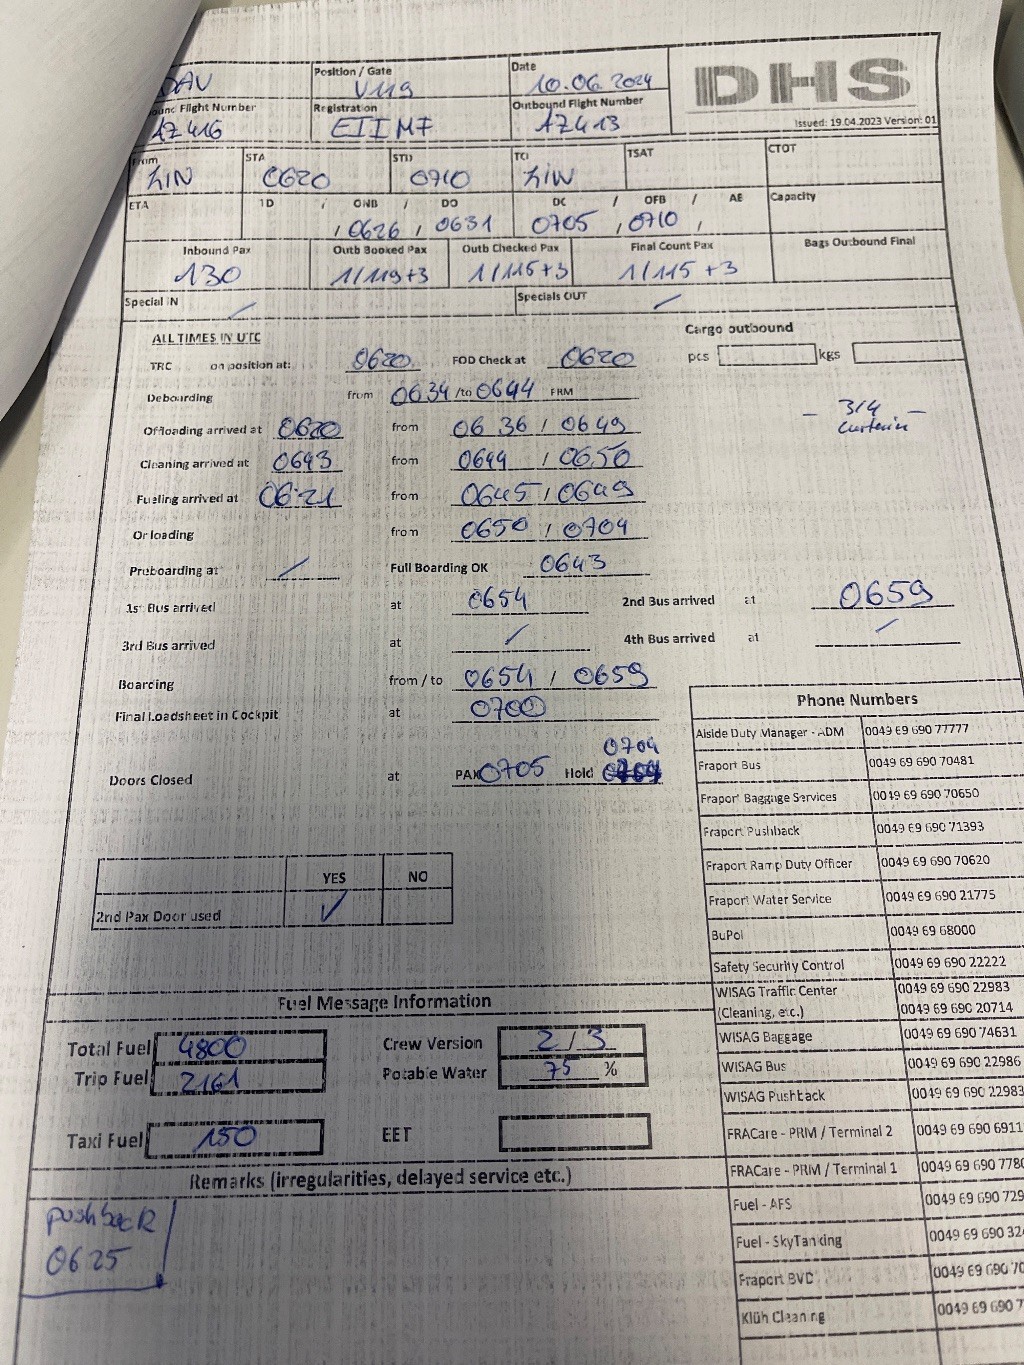 DAV
Position / Gate
V119
Date
10.06.2024
DHS
Issued: 19.04.2023 Version: 01
ound Flight Number
AZ 416
Registration
EIIMF
Outbound Flight Number
AZ413
From
LIN
STA
0620
STD
0710
TO
LIN
TSAT
CTOT
ETA
TD / ONB / DO
/ 0626 / 0631
DC / OFB / AE
0705 / 0710 /
Capacity
Inbound Pax
130
Outb Booked Pax
1/119+3
Outb Checked Pax
1/115+3
Final Count Pax
1/115+3
Bags Outbound Final
Special IN /
Specials OUT /
ALL TIMES IN UTC
Cargo outbound
TRC on position at: 0620 FOD Check at 0620
pcs kgs
Deboarding from 0634 /to 0644 FRM
- 3/4 -
Offloading arrived at 0620 from 0636 / 0649
Cleaning arrived at 0643 from 0644 / 0650
Fueling arrived at 0621 from 0645 / 0649
Onloading from 0650 / 0704
Preboarding at / Full Boarding OK 0643
1st Bus arrived at 0654 2nd Bus arrived at 0659
3rd Bus arrived at / 4th Bus arrived at /
Boarding from / to 0654 / 0659
Final Loadsheet in Cockpit at 0700
0704
Doors Closed at PAX 0705 Hold
YES NO
2nd Pax Door used ✓
Phone Numbers
Airside Duty Manager - ADM 0049 69 690 77777
Fraport Bus 0049 69 690 70481
Fraport Baggage Services 0049 69 690 70650
Fraport Pushback 0049 69 690 71393
Fraport Ramp Duty Officer 0049 69 690 70620
Fraport Water Service 0049 69 690 21775
BuPol 0049 69 68000
Safety Security Control 0049 69 690 22222
WISAG Traffic Center 0049 69 690 22983
(Cleaning, etc.) 0049 69 690 20714
WISAG Baggage 0049 69 690 74631
WISAG Bus 0049 69 690 22986
WISAG Pushback 0049 69 690 22983
FRACare - PRM / Terminal 2 0049 69 690 6911
FRACare - PRM / Terminal 1 0049 69 690 778
Fuel - AFS 0049 69 690 729
Fuel - SkyTanking 0049 69 690 32
Fraport BVD 0049 69 690 70
Klüh Cleaning 0049 69 690 7
Fuel Message Information
Total Fuel 4800 Crew Version 2 / 3
Trip Fuel 2161 Potable Water 75 %
Taxi Fuel 150 EET
Remarks (irregularities, delayed service etc.)
pushback
0625